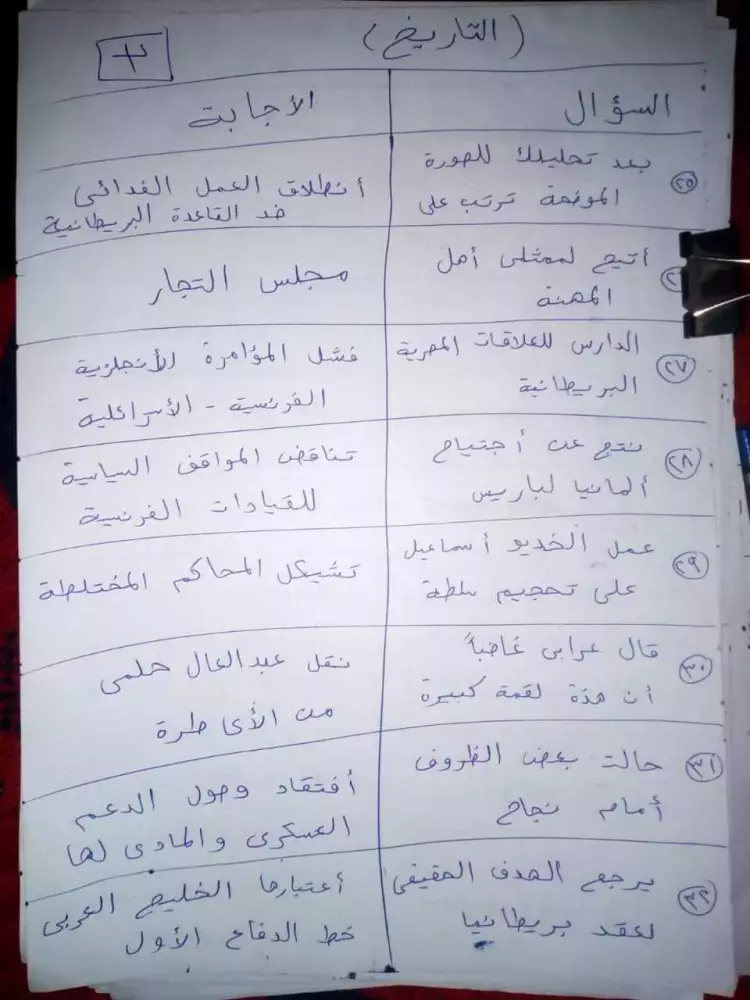 (التاريخ)
٣
السؤال
الأجابة
٢٥ بعد تحليلك للصورة
الموضحة ترتب على
أنطلاق العمل الفدائى
ضد القاعدة البريطانية
أتيح لممثلى أهل
المهنة
مجلس التجار
٢٧ الدارس للعلاقات المصرية
البريطانية
فشل المؤامرة الأنجلزية
الفرنسية - الأسرائلية
٢٨ نتج عن أجتياح
ألمانيا لباريس
تناقض المواقف السياسية
للقيادات الفرنسية
٢٩ عمل الخديو أسماعيل
على تحجيم سلطة
تشيكل المحاكم المختلطة
٣٠ قال عرابى غاضباً
أن هذة لقمة كبيرة
نقل عبدالعال حلمى
من الأى طرة
٣١ حالت بعض الظروف
أمام نجاح
أفتقاد وصول الدعم
العسكرى والمادى لها
٣٢ يرجع الهدف الحقيقى
لعقد بريطانيا
أعتبارها الخليج العربى
خط الدفاع الأول